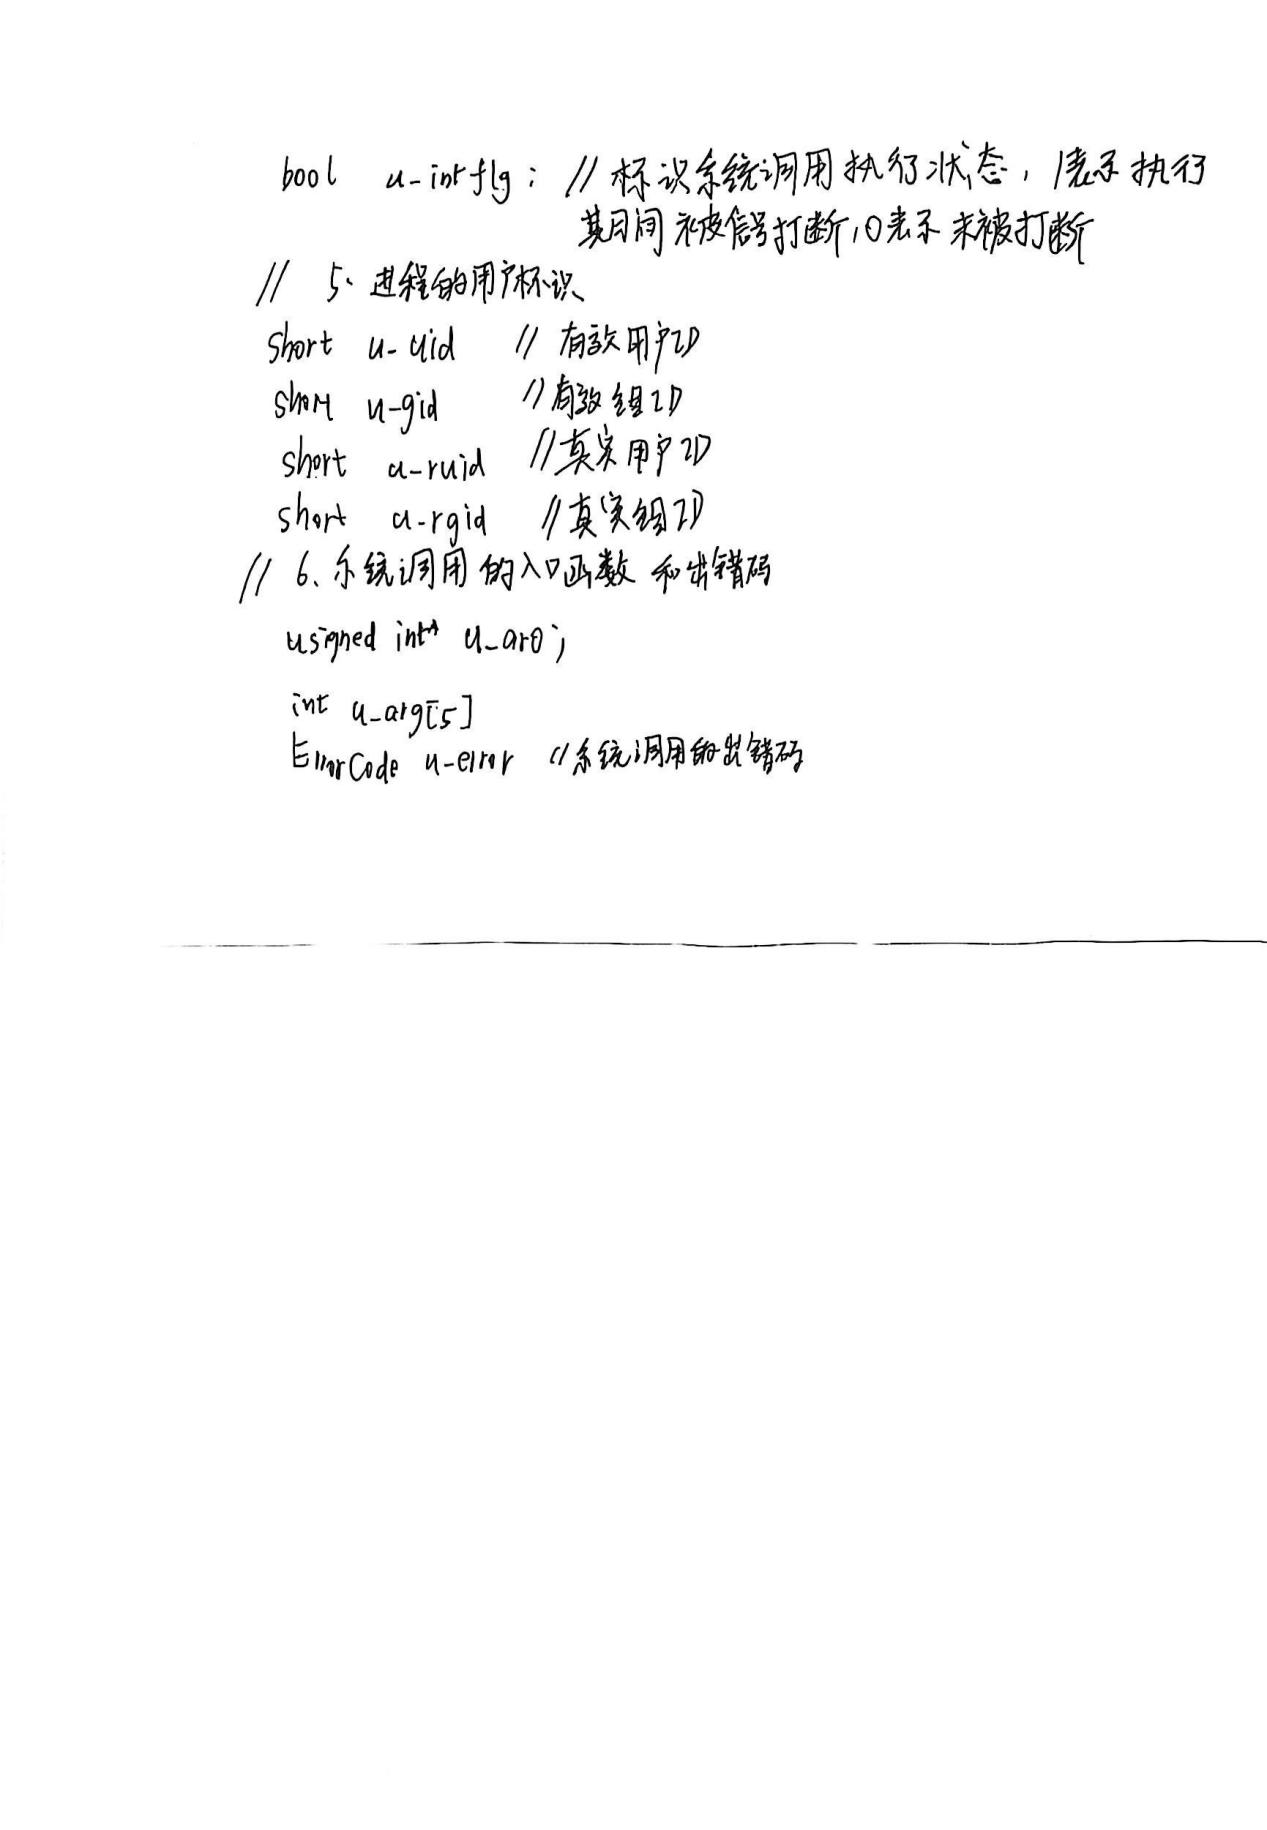 bool u-intflg; // 标识系统调用执行状态, 1表示执行
期间被信号打断,0表示未被打断
// 5、进程的用户标识
short u-uid // 有效用户ID
short u-gid // 有效组ID
short u-ruid // 真实用户ID
short u-rgid // 真实组ID
// 6、系统调用的入口函数和出错码
usigned int* u_ar0;
int u_arg[5]
ErrorCode u-error // 系统调用的出错码